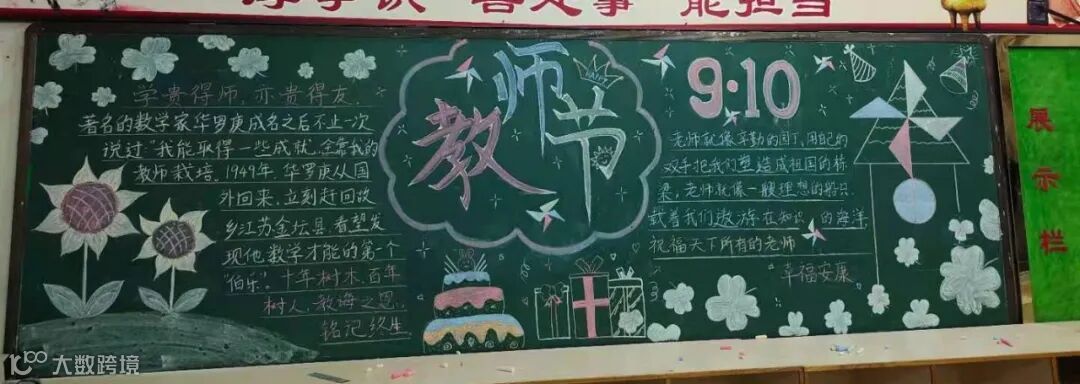 善处事 能担当
学贵得师,亦贵得友.
著名的数学家华罗庚成名之后不止一次
说过"我能取得一些成就.全靠我的
教师栽培.1949年.华罗庚从国
外回来.立刻赶回故
乡江苏金坛县.看望发
现他数学才能的第一个
"伯乐".十年树木.百年
树人.教诲之恩.
铭记终生
教师节
HAPPY
9:10
老师就像辛勤的园丁,用自己的
双手把我们塑造成祖国的栋
梁,老师就像一艘理想的船只.
载着我们遨游在知识的海洋
祝福天下所有的老师
幸福安康
展示栏
大数跨境